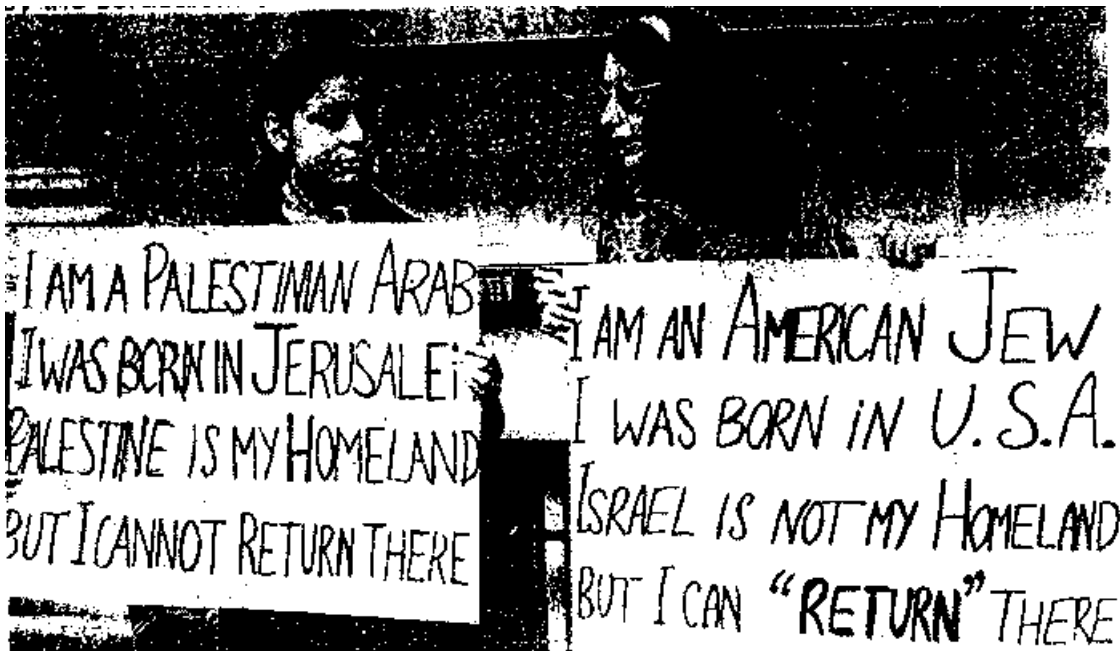 I AM A PALESTINIAN ARAB
I WAS BORN IN
PALESTINE IS MY HOMELAND
BUT I CANNOT RETURN THERE
I AM AN AMERICAN JEW
I WAS BORN IN U.S.A.
ISRAEL IS NOT MY HOMELAND
BUT I CAN "RETURN" THERE